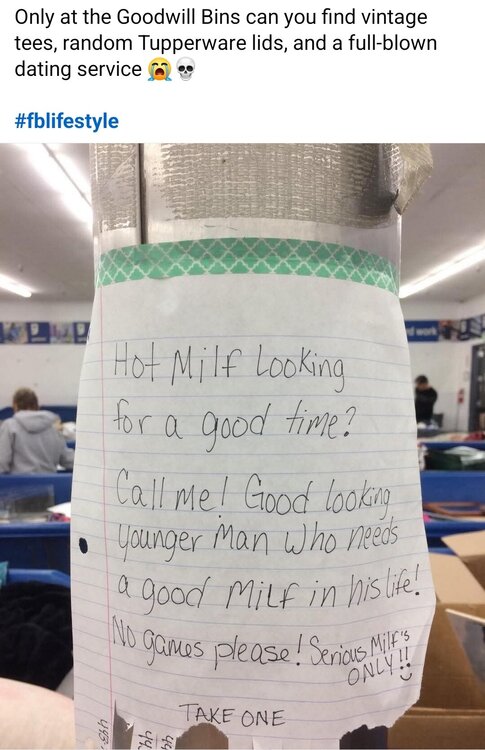 Only at the Goodwill Bins can you find vintage
tees, random Tupperware lids, and a full-blown
dating service 😭💀
#fblifestyle
Hot Milf Looking
for a good time?
Call me! Good looking
younger Man Who needs
a good MILF in his life!
No games please! Serious Milf's
ONLY!!
TAKE ONE